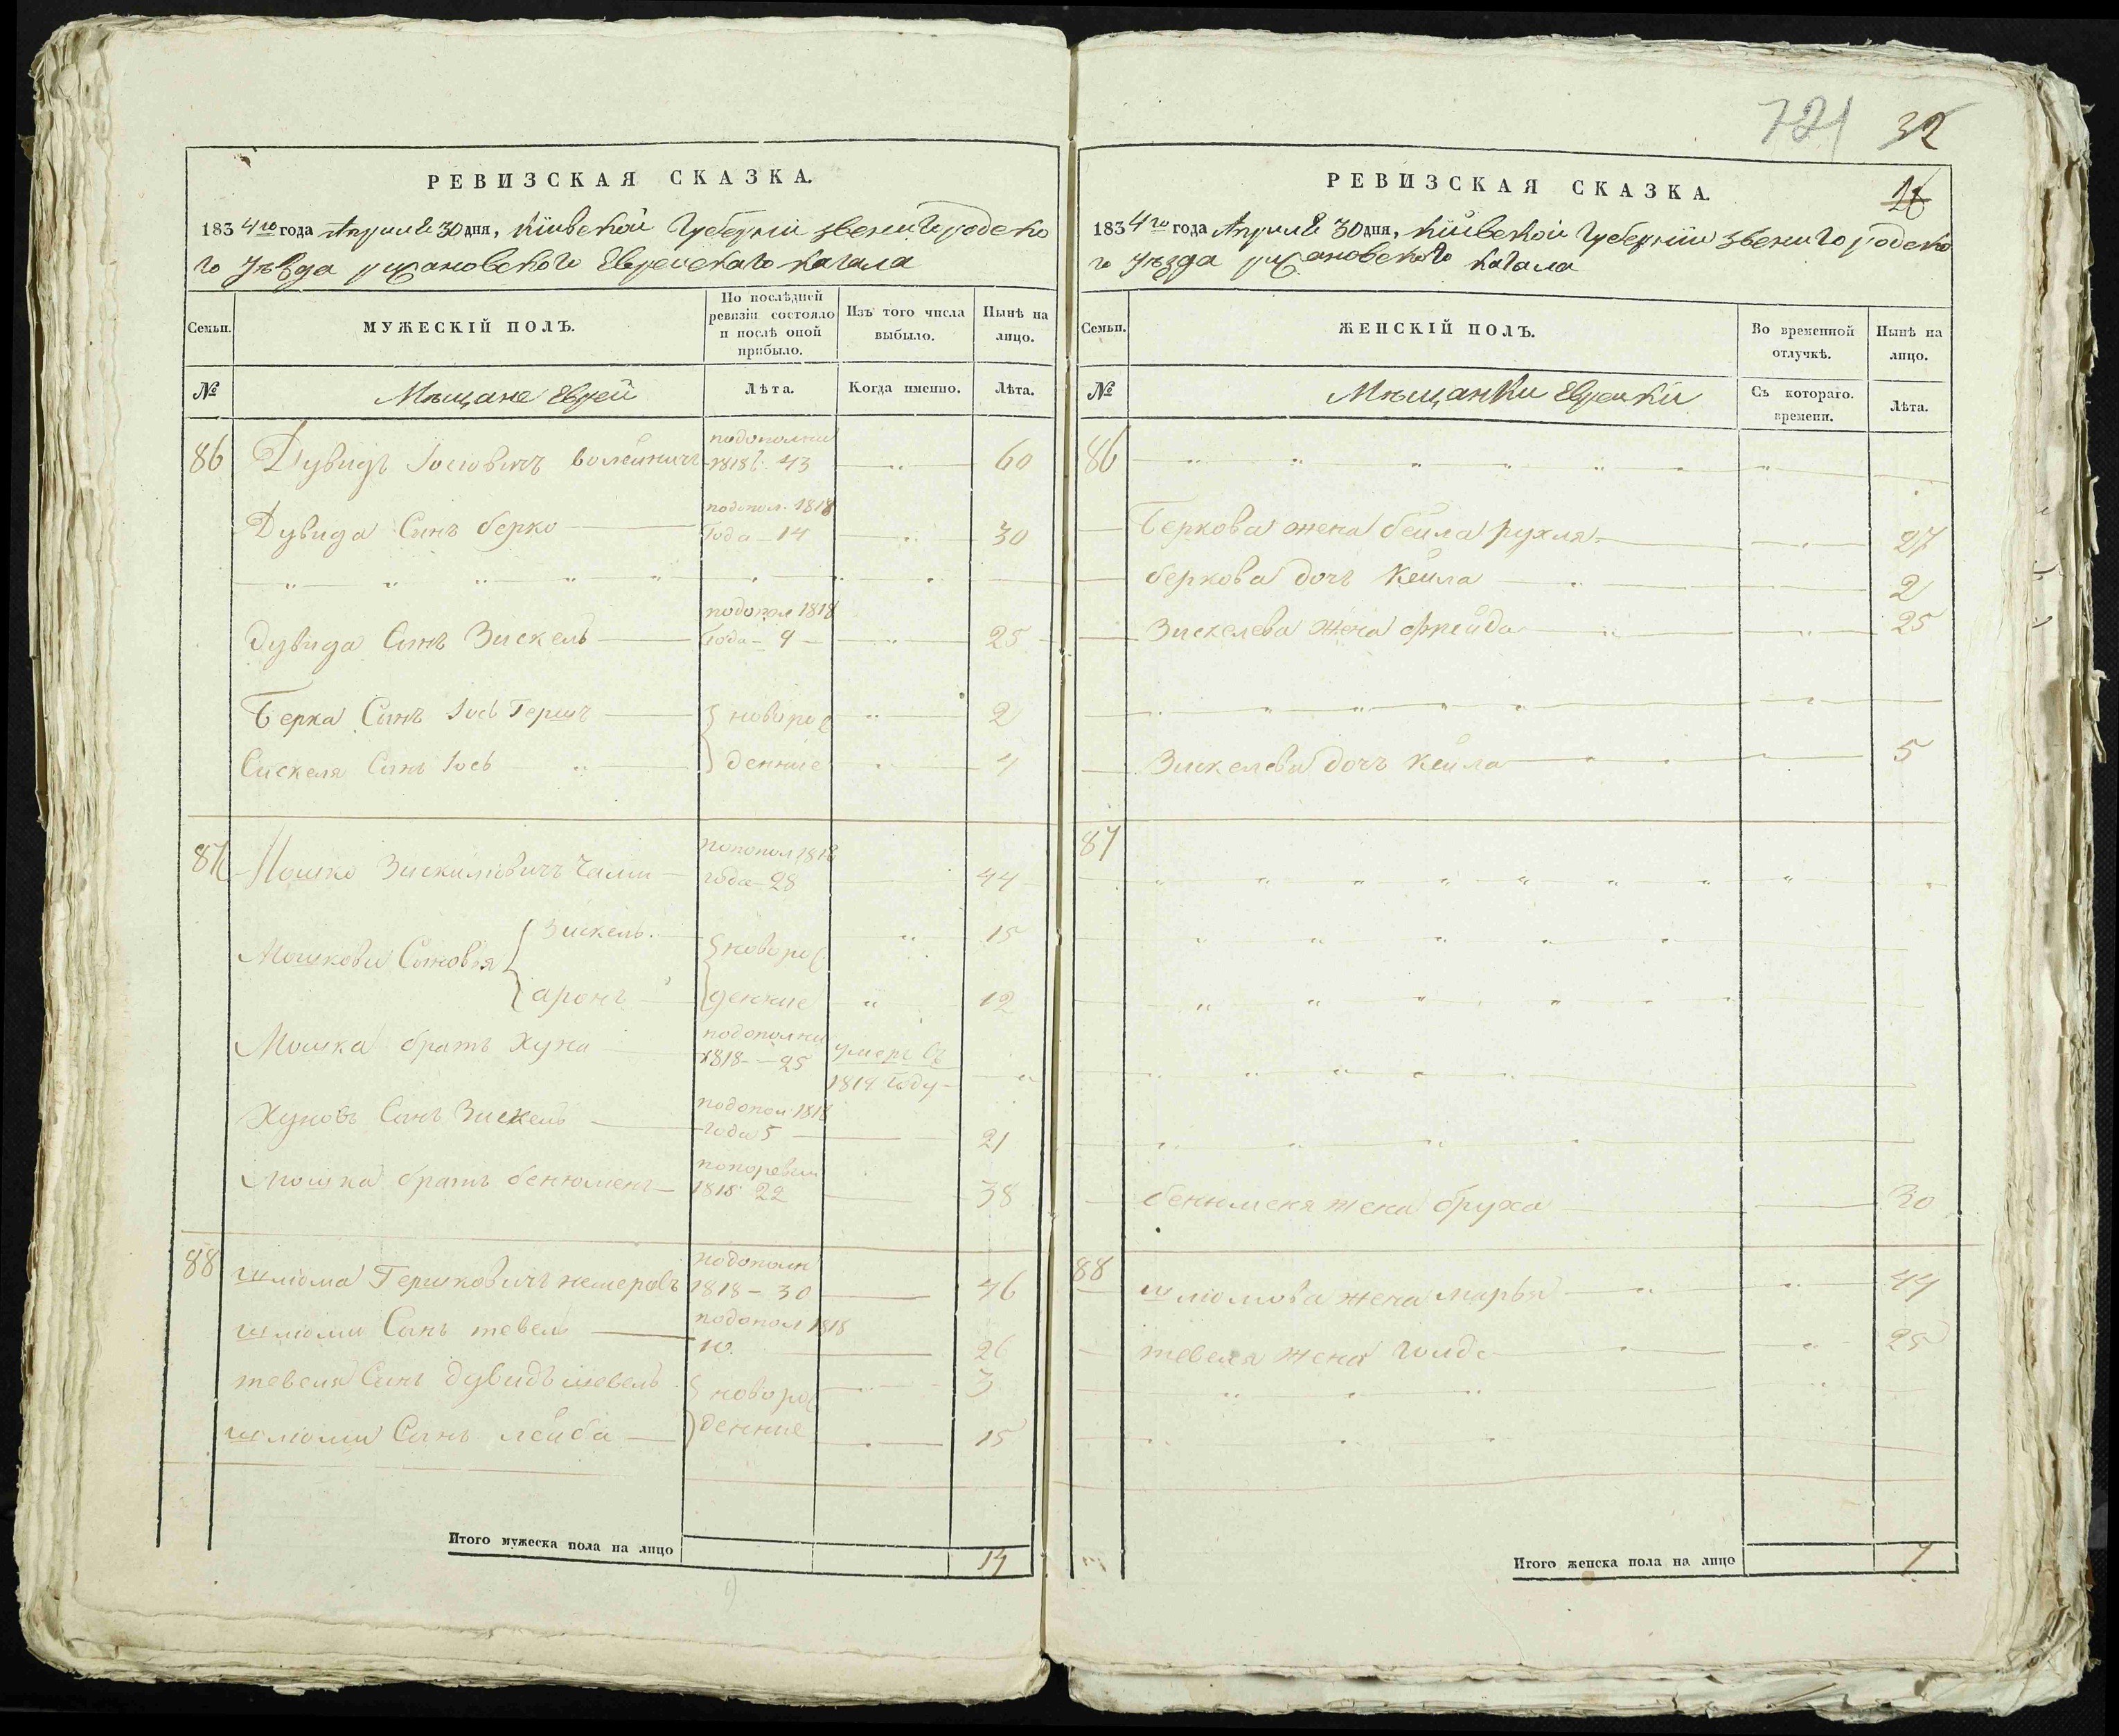 721 32
16
РЕВИЗСКАЯ СКАЗКА.
1834го года Апреля 30 дня, Кіивской Губерніи звенигородско
го уѣзда рижановского Еврейскаго кагала
Семьи. МУЖЕСКІЙ ПОЛЪ. По послѣдней ревизіи состояло и послѣ оной прибыло. Изъ того числа выбыло. Нынѣ на лицо.
№ Мѣщане Евреи Лѣта. Когда именно. Лѣта.
86 Дувидъ Іосіовичъ 1818 43 60
Дувида Синъ берко подопол. 1818 года 14 30
Дувида Синъ Зискель подопол 1818 года 9 25
Берка Синъ Іось Гершъ новорож 2
Сискеля Синъ Іось денние 4
87 Мошко Зискиліовичъ 1818 года 28 44
Мошкови Синовья Зискель новорож 15
аронъ денние 12
Мошка братъ Хуна подополни 1818 25 умеръ въ 1819 году
Хуновъ Синъ Зискель подопол 1818 года 5 21
Мошка братъ бенюменъ 1818 22 38
88 шліома Гершковичъ немеровъ подополн 1818 30 46
шліоми Синъ тевель подопол 1818 10 26
тевеля Синъ дувидъ новорож 3
шліоми Синъ лейба денние 15
Итого мужеска пола на лицо 14
РЕВИЗСКАЯ СКАЗКА.
1834го года Апреля 30 дня, Кіивской Губерніи звенигородско
го уѣзда рижановского кагала
Семьи. ЖЕНСКІЙ ПОЛЪ. Во временной отлучкѣ. Нынѣ на лицо.
№ Мѣщанки Еврейки Съ котораго. времени. Лѣта.
86
Беркова жена бейла рухля 27
беркова дочъ Кейла 2
Зискелева жена фрейда 25
Зискелева дочъ Кейла 5
87
бенюменя жена бруха 30
88 шліомова жена марья 44
тевеля жена голда 25
Итого женска пола на лицо 7